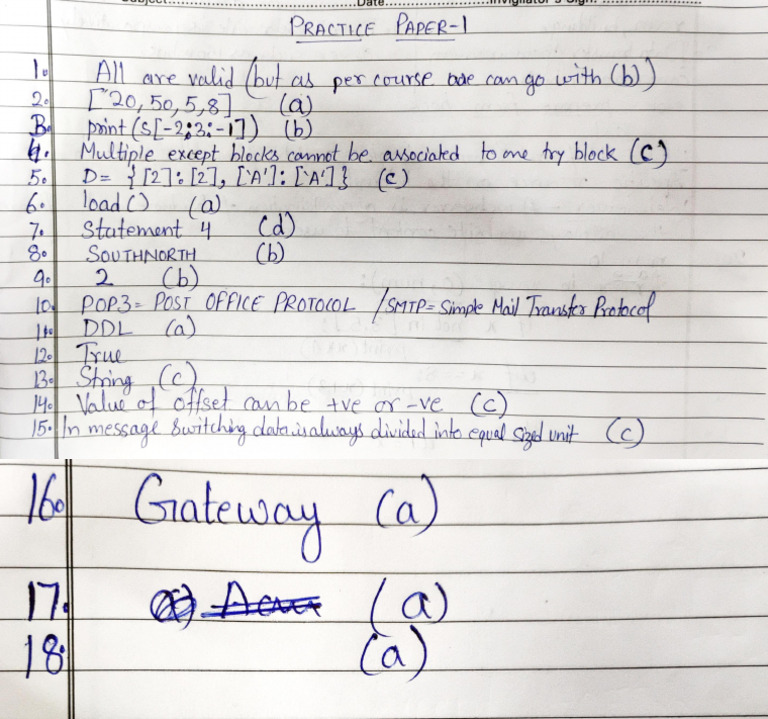 Subject.......... Date.......... Invigilator's Sign. ..........
PRACTICE PAPER-1
1. All are valid (but as per course one can go with (b))
2. ["20, 50, 5, 8] (a)
3. print (S[-2:2:-1]) (b)
4. Multiple except blocks cannot be associated to one try block (c)
5. D= {[2]:[2], ['A']:['A']} (c)
6. load() (a)
7. Statement 4 (d)
8. SOUTHNORTH (b)
9. 2 (b)
10. POP3= POST OFFICE PROTOCOL /SMTP= Simple Mail Transfer Protocol
11. DDL (a)
12. True
13. String (c)
14. Value of offset can be +ve or -ve (c)
15. In message switching data is always divided into equal sized unit (c)
16. Gateway (a)
17. (a)
18. (a)